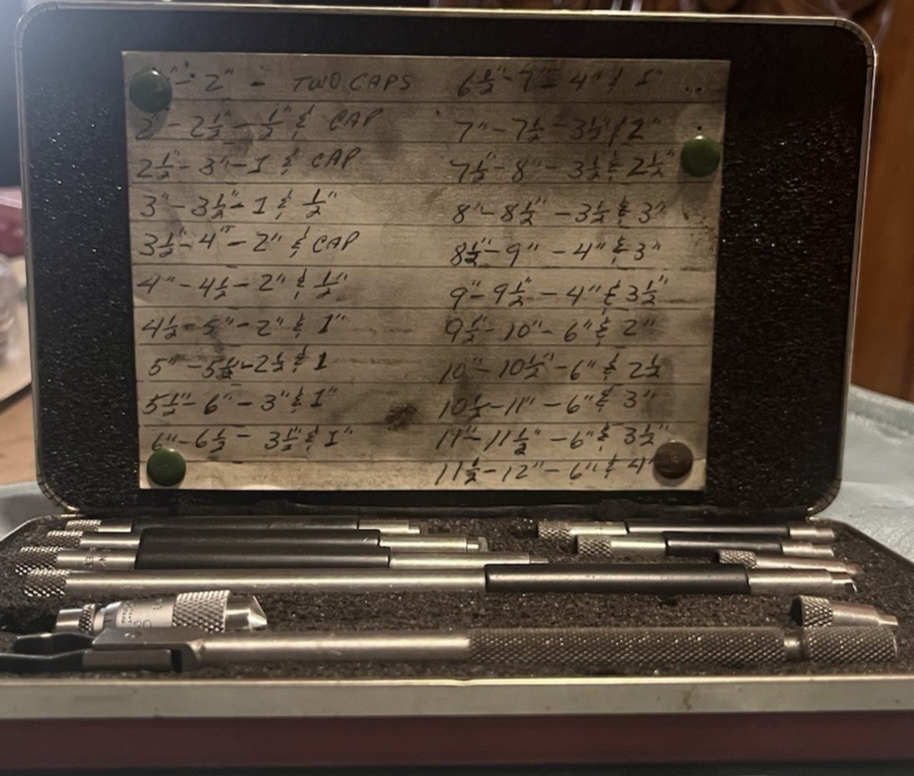 " - 2" - TWO CAPS
2" - 2½" - ½" & CAP
2½" - 3" - 1 & CAP
3" - 3½" - 1 & ½"
3½" - 4" - 2" & CAP
4" - 4½ - 2" & ½"
4½ - 5" - 2" & 1"
5" - 5½" - 2½ & 1
5½" - 6" - 3" & 1"
6" - 6½ - 3½" & 1"
6½" - 7" - 4" & 1"
7" - 7½ - 3½" & 2"
7½" - 8" - 3½ & 2½"
8" - 8½" - 3½ & 3"
8½" - 9" - 4" & 3"
9" - 9½" - 4" & 3½"
9½" - 10" - 6" & 2"
10" - 10½" - 6" & 2½
10½ - 11" - 6" & 3"
11" - 11½" - 6" & 3½"
11½ - 12" - 6" & 4"